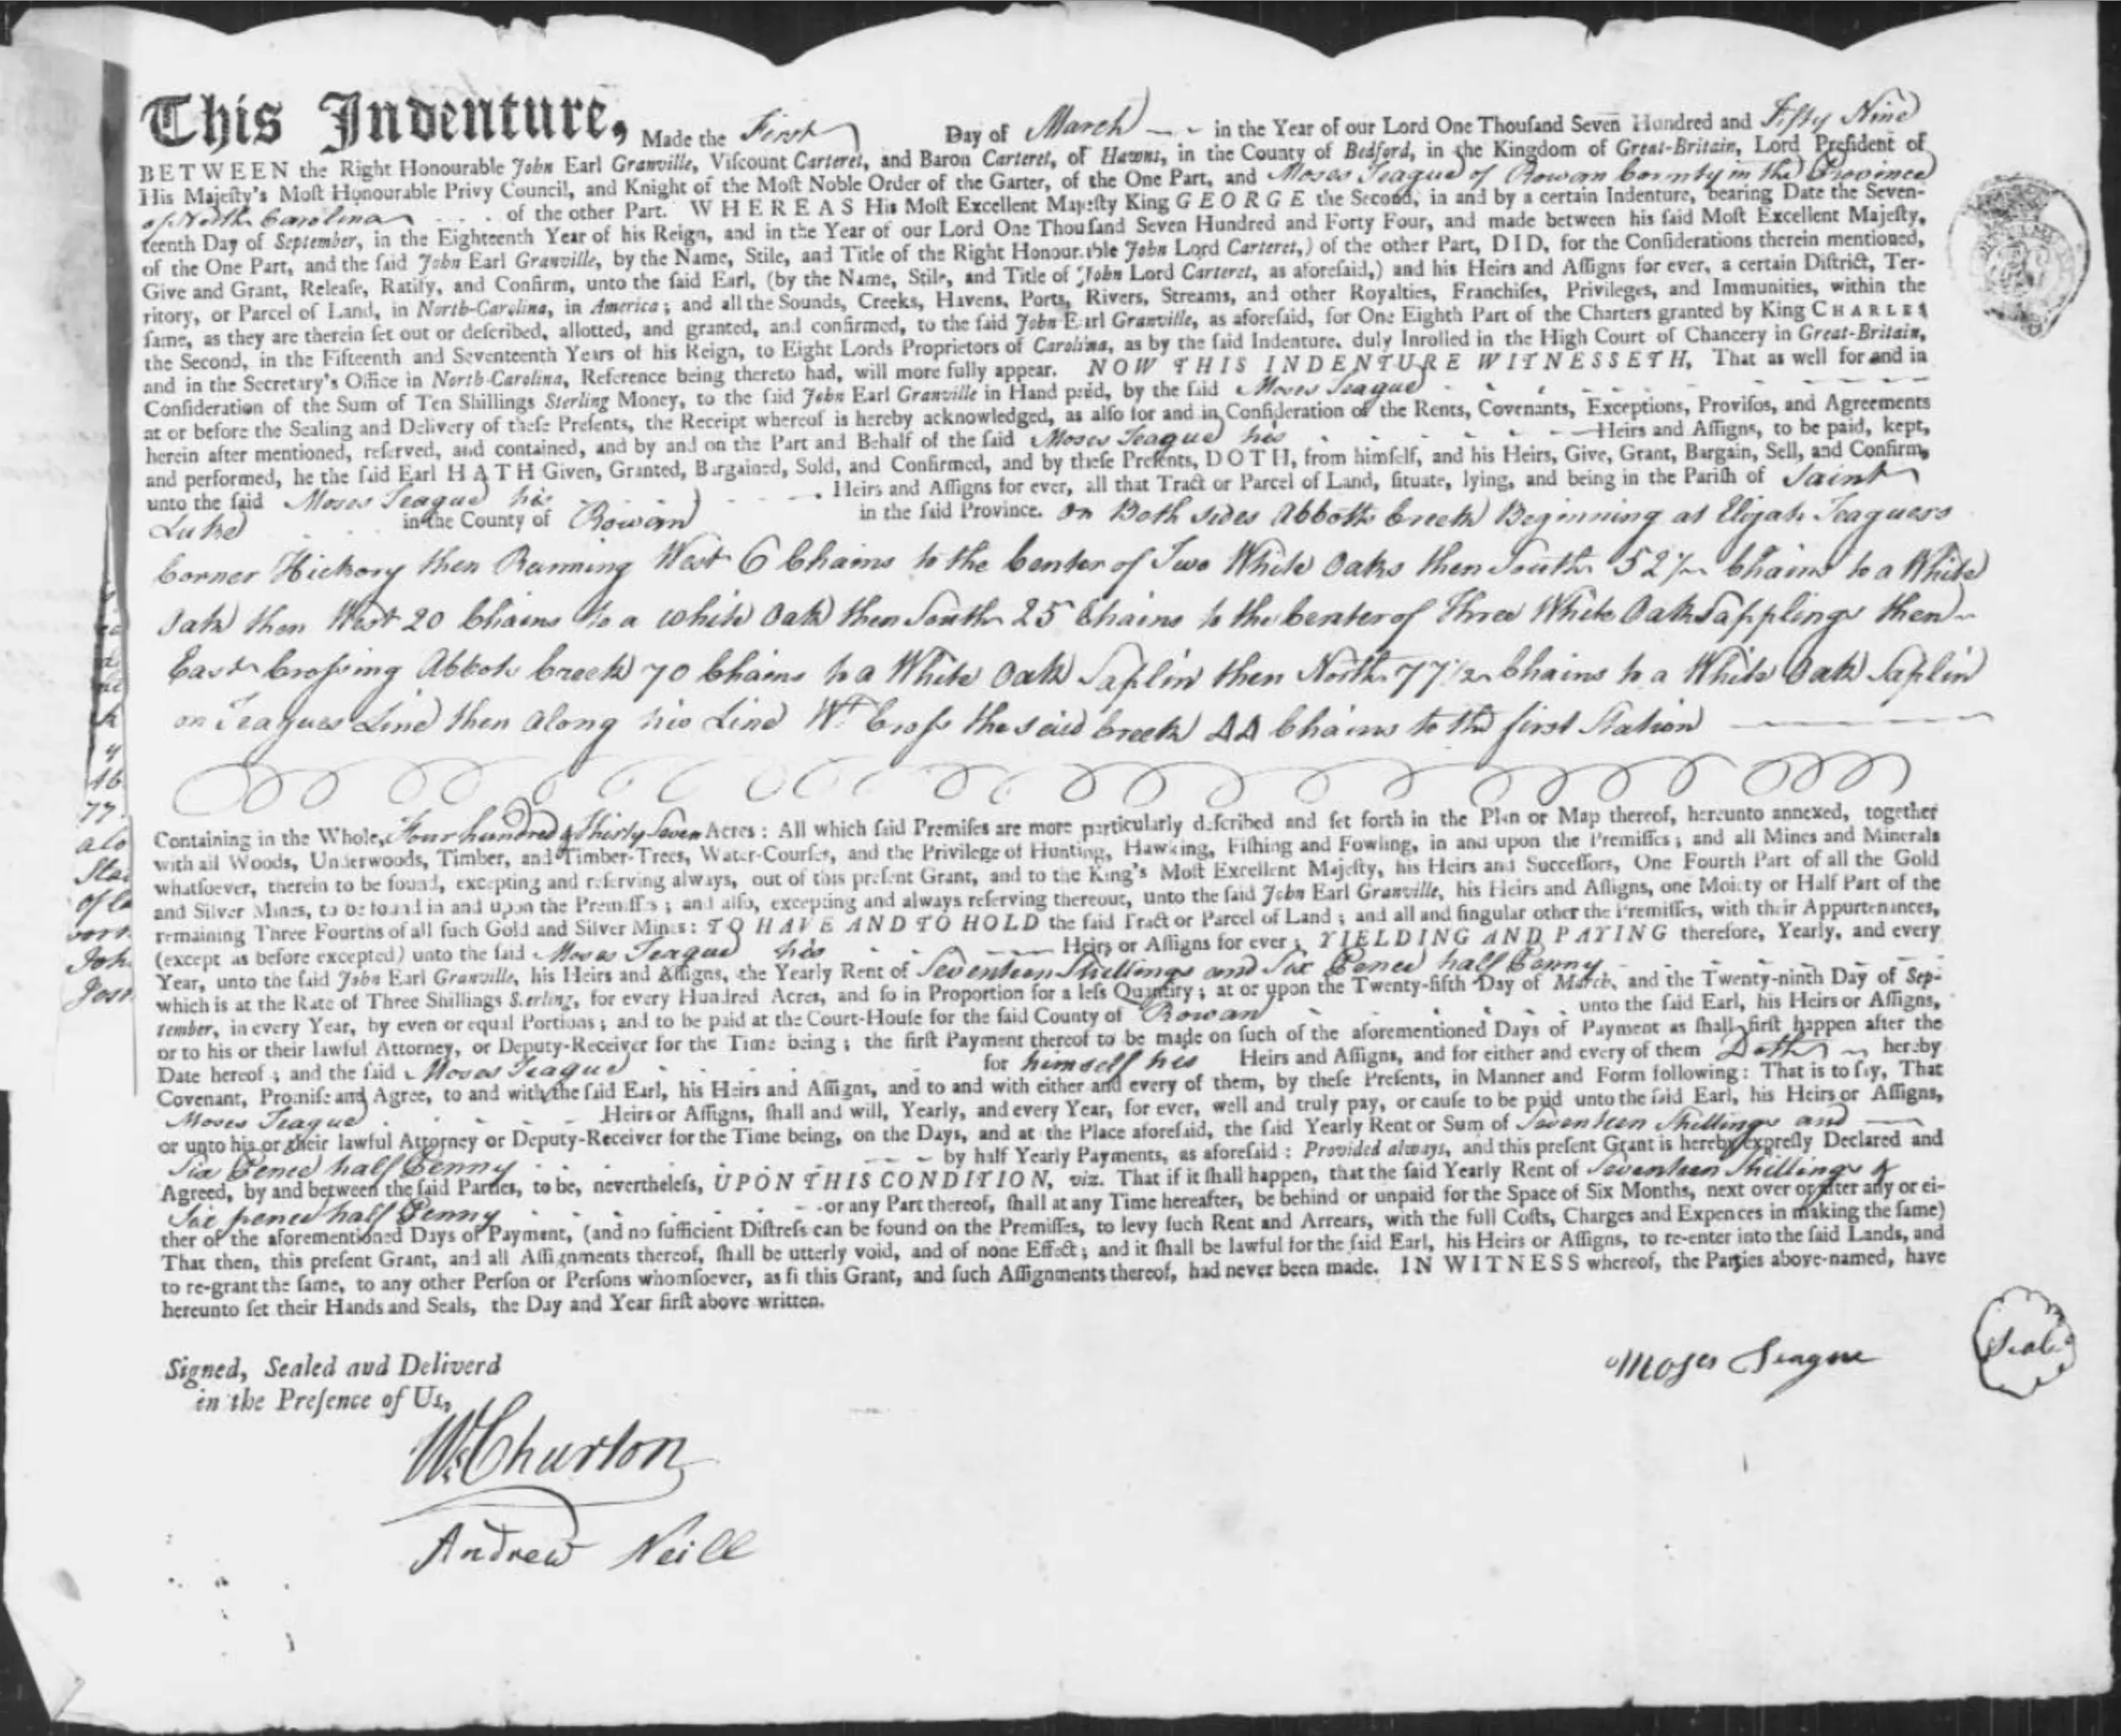 This Indenture, Made the First Day of March in the Year of our Lord One Thouſand Seven Hundred and Fifty Nine
BETWEEN the Right Honourable John Earl Granville, Viſcount Carteret, and Baron Carteret, of Hawns, in the County of Bedford, in the Kingdom of Great-Britain, Lord Preſident of
His Majeſty's Moſt Honourable Privy Council, and Knight of the Moſt Noble Order of the Garter, of the One Part, and Moses Teague of Rowan County in the Province
of North Carolina of the other Part. WHEREAS His Moſt Excellent Majeſty King GEORGE the Second, in and by a certain Indenture, bearing Date the Seven-
teenth Day of September, in the Eighteenth Year of his Reign, and in the Year of our Lord One Thouſand Seven Hundred and Forty Four, and made between his ſaid Moſt Excellent Majeſty,
of the One Part, and the ſaid John Earl Granville, by the Name, Stile, and Title of the Right Honourable John Lord Carteret,) of the other Part, DID, for the Conſiderations therein mentioned,
Give and Grant, Releaſe, Ratify, and Confirm, unto the ſaid Earl, (by the Name, Stile, and Title of John Lord Carteret, as aforeſaid,) and his Heirs and Aſſigns for ever, a certain Diſtrict, Ter-
ritory, or Parcel of Land, in North-Carolina, in America; and all the Sounds, Creeks, Havens, Ports, Rivers, Streams, and other Royalties, Franchiſes, Privileges, and Immunities, within the
ſame, as they are therein ſet out or deſcribed, allotted, and granted, and confirmed, to the ſaid John Earl Granville, as aforeſaid, for One Eighth Part of the Charters granted by King CHARLES
the Second, in the Fifteenth and Seventeenth Years of his Reign, to Eight Lords Proprietors of Carolina, as by the ſaid Indenture, duly Inrolled in the High Court of Chancery in Great-Britain,
and in the Secretary's Office in North-Carolina, Reference being thereto had, will more fully appear. NOW THIS INDENTURE WITNESSETH, That as well for and in
Conſideration of the Sum of Ten Shillings Sterling Money, to the ſaid John Earl Granville in Hand paid, by the ſaid Moses Teague
at or before the Sealing and Delivery of theſe Preſents, the Receipt whereof is hereby acknowledged, as alſo for and in Conſideration of the Rents, Covenants, Exceptions, Proviſos, and Agreements
herein after mentioned, reſerved, and contained, and by and on the Part and Behalf of the ſaid Moses Teague his Heirs and Aſſigns, to be paid, kept,
and performed, he the ſaid Earl HATH Given, Granted, Bargained, Sold, and Confirmed, and by theſe Preſents, DOTH, from himſelf, and his Heirs, Give, Grant, Bargain, Sell, and Confirm,
unto the ſaid Moses Teague his Heirs and Aſſigns for ever, all that Tract or Parcel of Land, ſituate, lying, and being in the Pariſh of Saint
Luke in the County of Rowan in the ſaid Province. On Both sides Abbotts Creek Beginning at Elijah Teagues
Corner Hickory then Running West 6 Chains to the Center of Two White Oaks then South 52½ Chains to a White
Oak then West 20 Chains to a white Oak then South 25 Chains to the Center of Three White Oak Sapplings then
East Croſsing Abbots Creek 70 Chains to a White Oak Saplin then North 77½ Chains to a White Oak Saplin
on Teagues Line then along his Line Wt. Croſs the said Creek 44 Chains to the first Station
Containing in the Whole, Four hundred & Thirty Seven Acres: All which ſaid Premiſes are more particularly deſcribed and ſet forth in the Plan or Map thereof, hereunto annexed, together
with all Woods, Underwoods, Timber, and Timber-Trees, Water-Courſes, and the Privilege of Hunting, Hawking, Fiſhing and Fowling, in and upon the Premiſſes; and all Mines and Minerals
whatſoever, therein to be found, excepting and reſerving always, out of this preſent Grant, and to the King's Moſt Excellent Majeſty, his Heirs and Succeſſors, One Fourth Part of all the Gold
and Silver Mines, to be found in and upon the Premiſſes; and alſo, excepting and always reſerving thereout, unto the ſaid John Earl Granville, his Heirs and Aſſigns, one Moiety or Half Part of the
remaining Three Fourths of all ſuch Gold and Silver Mines: TO HAVE AND TO HOLD the ſaid Tract or Parcel of Land; and all and ſingular other the Premiſſes, with their Appurtenances,
(except as before excepted) unto the ſaid Moses Teague his Heirs or Aſſigns for ever; YIELDING AND PAYING therefore, Yearly, and every
Year, unto the ſaid John Earl Granville, his Heirs and Aſſigns, the Yearly Rent of Seventeen Shillings and Six Pence half Penny
which is at the Rate of Three Shillings Sterling, for every Hundred Acres, and ſo in Proportion for a leſs Quantity; at or upon the Twenty-fifth Day of March, and the Twenty-ninth Day of Sep-
tember, in every Year, by even or equal Portions; and to be paid at the Court-Houſe for the ſaid County of Rowan unto the ſaid Earl, his Heirs or Aſſigns,
or to his or their lawful Attorney, or Deputy-Receiver for the Time being; the firſt Payment thereof to be made on ſuch of the aforementioned Days of Payment as ſhall firſt happen after the
Date hereof; and the ſaid Moses Teague for himself his Heirs and Aſſigns, and for either and every of them Doth hereby
Covenant, Promiſe and Agree, to and with the ſaid Earl, his Heirs and Aſſigns, and to and with either and every of them, by theſe Preſents, in Manner and Form following: That is to ſay, That
Moses Teague Heirs or Aſſigns, ſhall and will, Yearly, and every Year, for ever, well and truly pay, or cauſe to be paid unto the ſaid Earl, his Heirs or Aſſigns,
or unto his or their lawful Attorney or Deputy-Receiver for the Time being, on the Days, and at the Place aforeſaid, the ſaid Yearly Rent or Sum of Seventeen Shillings and
Six Pence half Penny by half Yearly Payments, as aforeſaid: Provided always, and this preſent Grant is hereby expreſly Declared and
Agreed, by and between the ſaid Parties, to be, nevertheleſs, UPON THIS CONDITION, viz. That if it ſhall happen, that the ſaid Yearly Rent of Seventeen Shillings &
Six pence half Penny or any Part thereof, ſhall at any Time hereafter, be behind or unpaid for the Space of Six Months, next over or after any or ei-
ther of the aforementioned Days of Payment, (and no ſufficient Diſtreſs can be found on the Premiſſes, to levy ſuch Rent and Arrears, with the full Coſts, Charges and Expences in making the ſame)
That then, this preſent Grant, and all Aſſignments thereof, ſhall be utterly void, and of none Effect; and it ſhall be lawful for the ſaid Earl, his Heirs or Aſſigns, to re-enter into the ſaid Lands, and
to re-grant the ſame, to any other Perſon or Perſons whomſoever, as fi this Grant, and ſuch Aſſignments thereof, had never been made. IN WITNESS whereof, the Parties above-named, have
hereunto ſet their Hands and Seals, the Day and Year firſt above written.
Signed, Sealed aud Deliverd
in the Preſence of Us,
Moſes Teague
Seal
Wm Churton
Andrew Neill